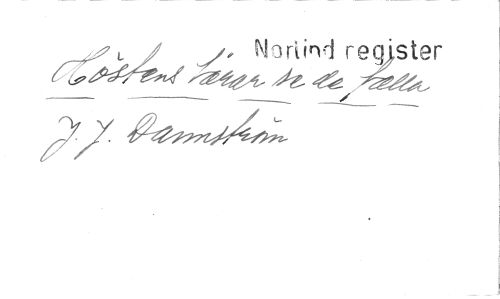 Norlind register
Höstens tårar se de falla
J. J. Dannström